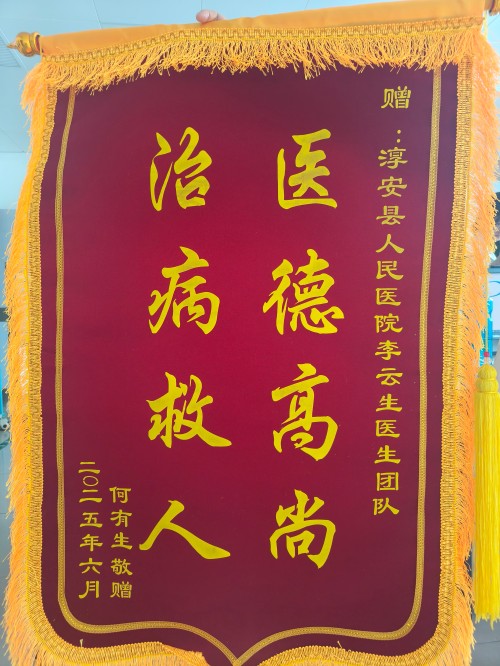 赠：淳安县人民医院李云生医生团队
医德高尚
治病救人
何有生敬赠
二〇二五年六月